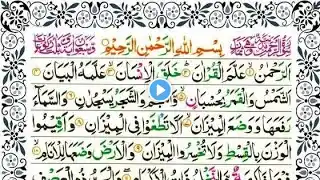 بِسْمِ اللهِ الرَّحْمٰنِ الرَّحِيْمِ
اَلرَّحْمٰنُ ۝۱ عَلَّمَ الْقُرْاٰنَ ۝۲ خَلَقَ الْاِنْسَانَ ۝۳ عَلَّمَهُ الْبَيَانَ ۝۴
اَلشَّمْسُ وَالْقَمَرُ بِحُسْبَانٍ ۝۵ وَّالنَّجْمُ وَالشَّجَرُ يَسْجُدٰنِ ۝۶ وَالسَّمَآءَ
رَفَعَهَا وَوَضَعَ الْمِيْزَانَ ۝۷ اَلَّا تَطْغَوْا فِى الْمِيْزَانِ ۝۸ وَاَقِيْمُوا
الْوَزْنَ بِالْقِسْطِ وَلَا تُخْسِرُوا الْمِيْزَانَ ۝۹ وَالْاَرْضَ وَضَعَهَا لِلْاَنَامِ ۝۱۰